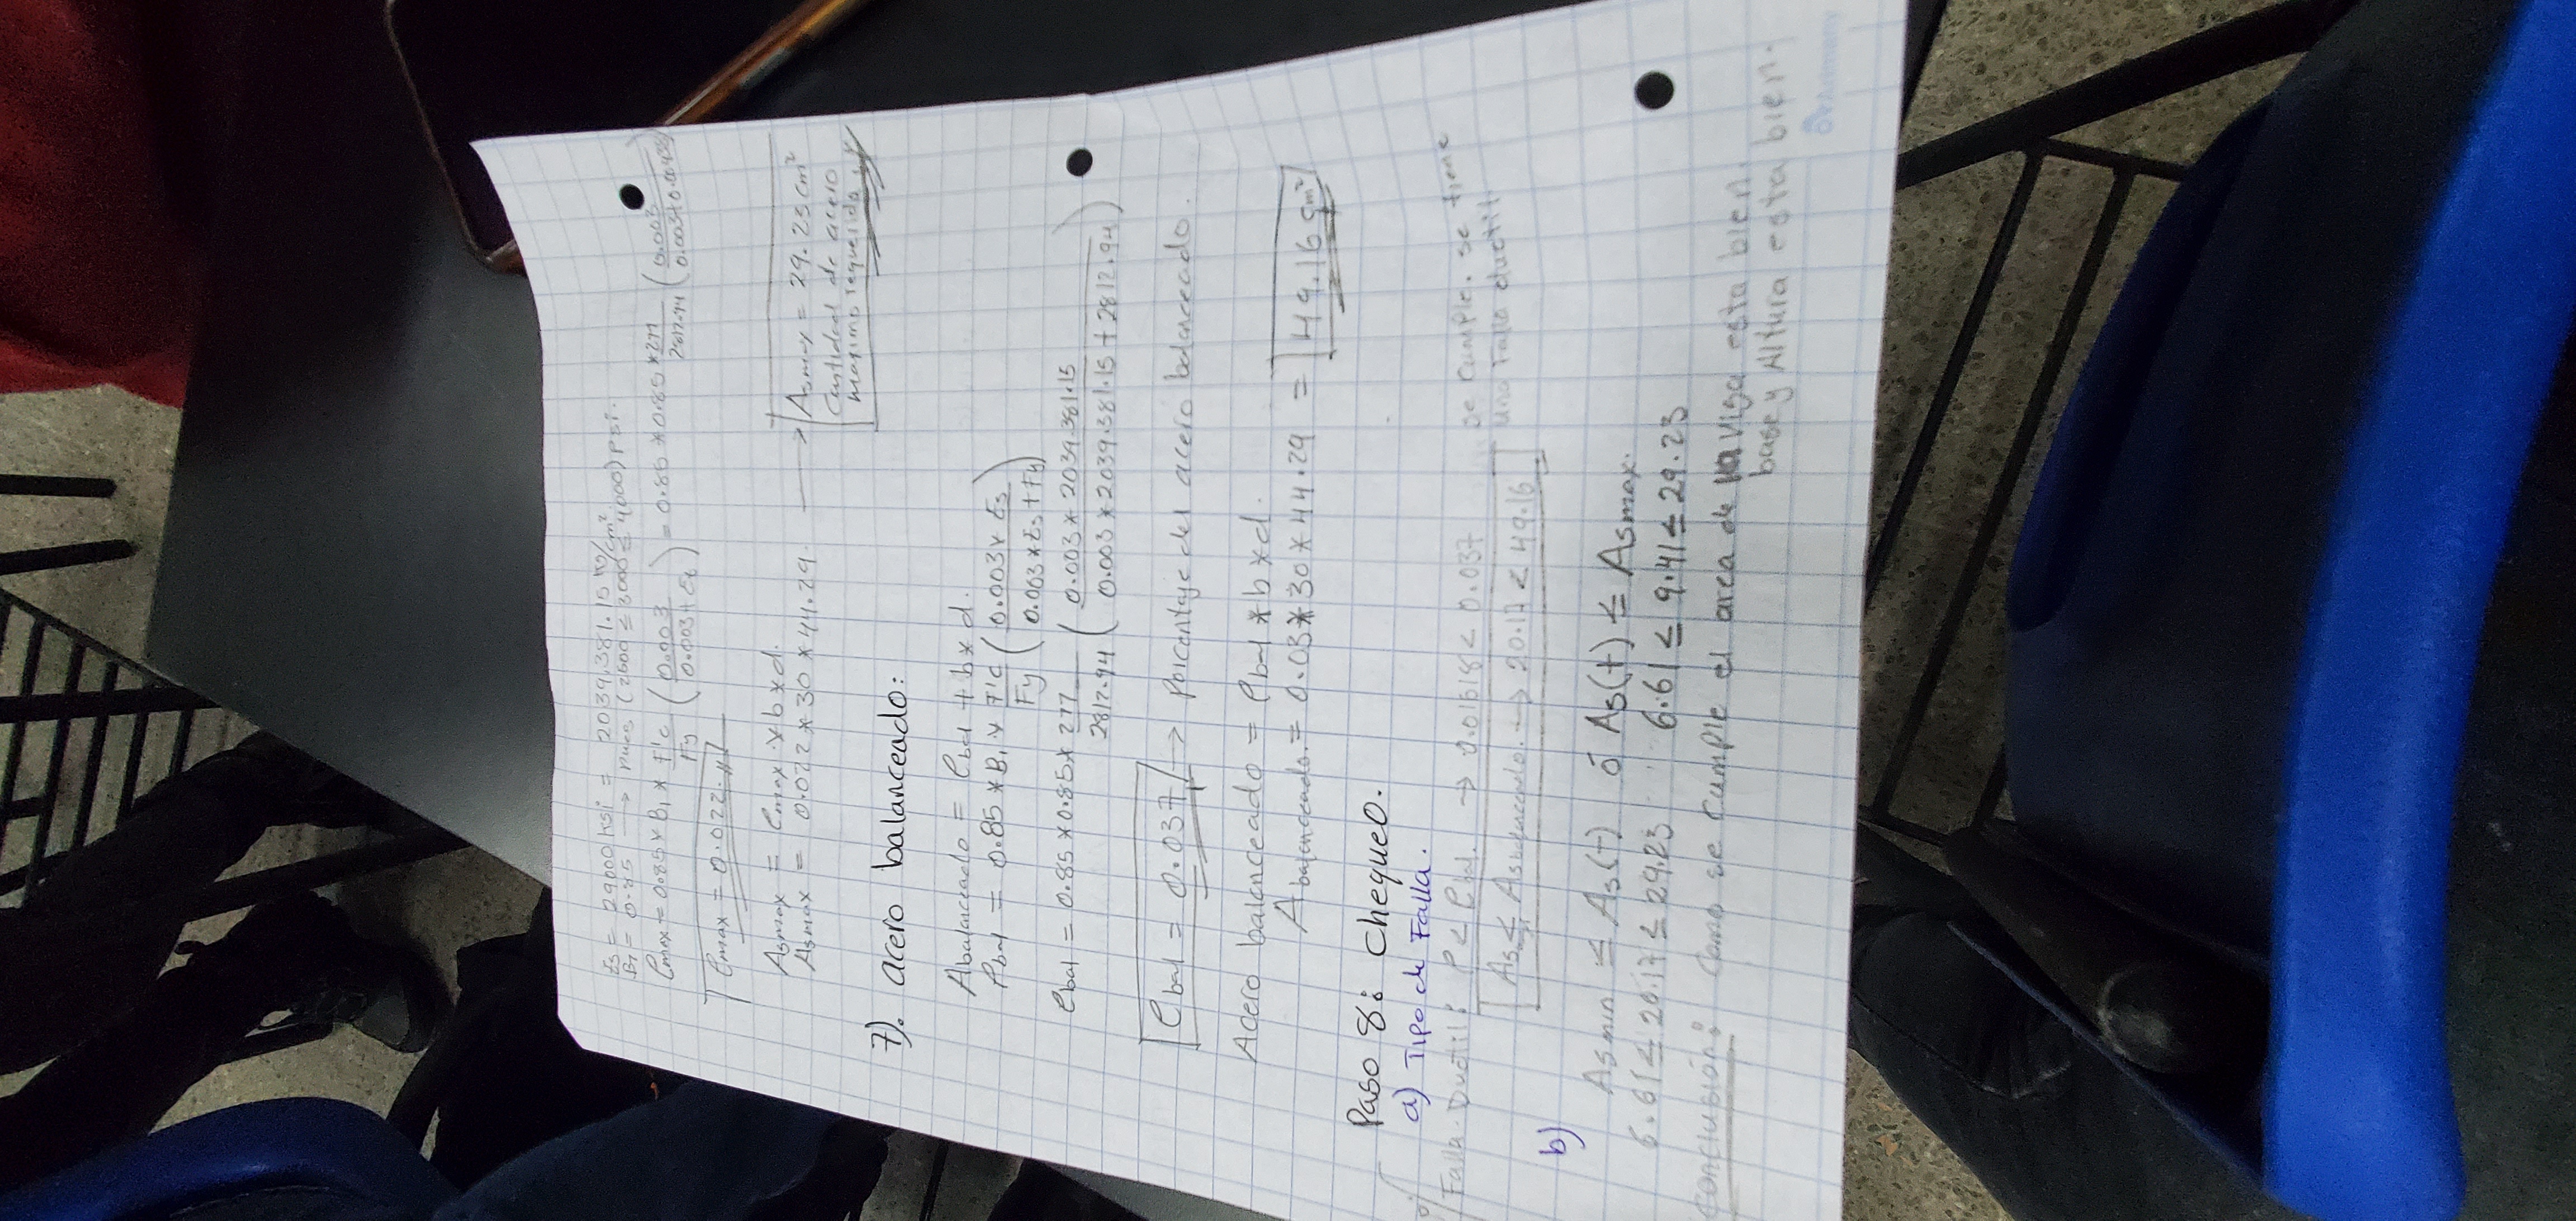 Es = 29000 Ksi = 2039,381.15 kg/cm²
B1 = 0.85 → pues (2500 ≤ 3000 ≤ 4000) PSI.
ρmax = 0.85 * B1 * F'c/Fy (0.003/(0.003 + Et)) = 0.85 * 0.85 * 277/2812.94 (0.003/
ρmax = 0.022
Asmax = ρmax * b * d.
Asmax = 0.022 * 30 * 44.29 → Asmax = 29.23 cm²
Cantidad de acero
maximo requerido
7). acero balanceado:
Abalanceado = ρbal + b * d.
ρbal = 0.85 * B1 * F'c/Fy (0.003 * Es/(0.003 * Es + Fy))
ρbal = 0.85 * 0.85 * 277/2812.94 (0.003 * 2039.381.15/(0.003 * 2039.381.15 + 2812.94))
ρbal = 0.037 → Porcentaje del acero balanceado.
Acero balanceado = ρbal * b * d.
Abalanceado. = 0.03 * 30 * 44.29 = 49.16 cm²
Paso 8: chequeo.
a) Tipo de Falla.
Falla Ductil: ρ < ρbal. → 0.01518 < 0.037 se cumple. se tiene
una Falla ductil
As ≤ Asbalanceado. → 20.17 < 49.16
b)
Asmin ≤ As(-) ó As(+) ≤ Asmax.
6.61 ≤ 20.17 ≤ 29.23 6.61 ≤ 9.41 ≤ 29.23
Conclusión: Como se cumple el area de la viga esta bien.
base y Altura esta bien.